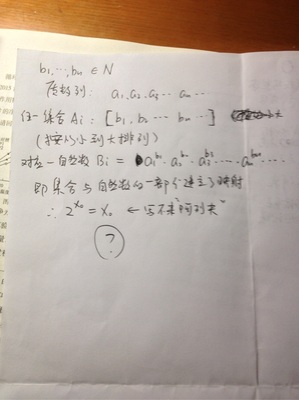 b₁,…,bₙ ∈ N
质数列: a₁,a₂,a₃ … aₙ …
任一集合 Aᵢ: [b₁,b₂ … bₙ … ]
(按从小到大排列)
对应一自然数 Bᵢ = a₁^b₁ · a₂^b₂ · a₃^b₃ … aₙ^bₙ …
即集合与自然数的一部分建立了映射
∴ 2^χ₀ = χ₀ ← 写不来"阿列夫"
?